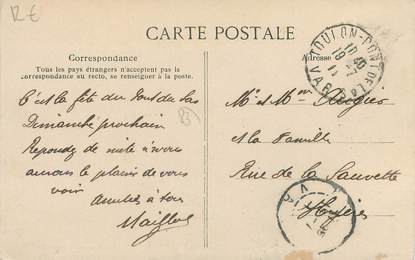 12 €
CARTE POSTALE
Correspondance
Tous les pays étrangers n'acceptent pas la
correspondance au recto, se renseigner à la poste.
Adresse
TOULON-S
VAR
C'est la fête du Pont du Las
Dimanche prochain
Repondez de suite si vous
aurons le plaisir de vous
voir Amitiés à tous
Maillol
83
Mr et Mme
et la famille
Rue de la Sauvette
Hyères
VAR